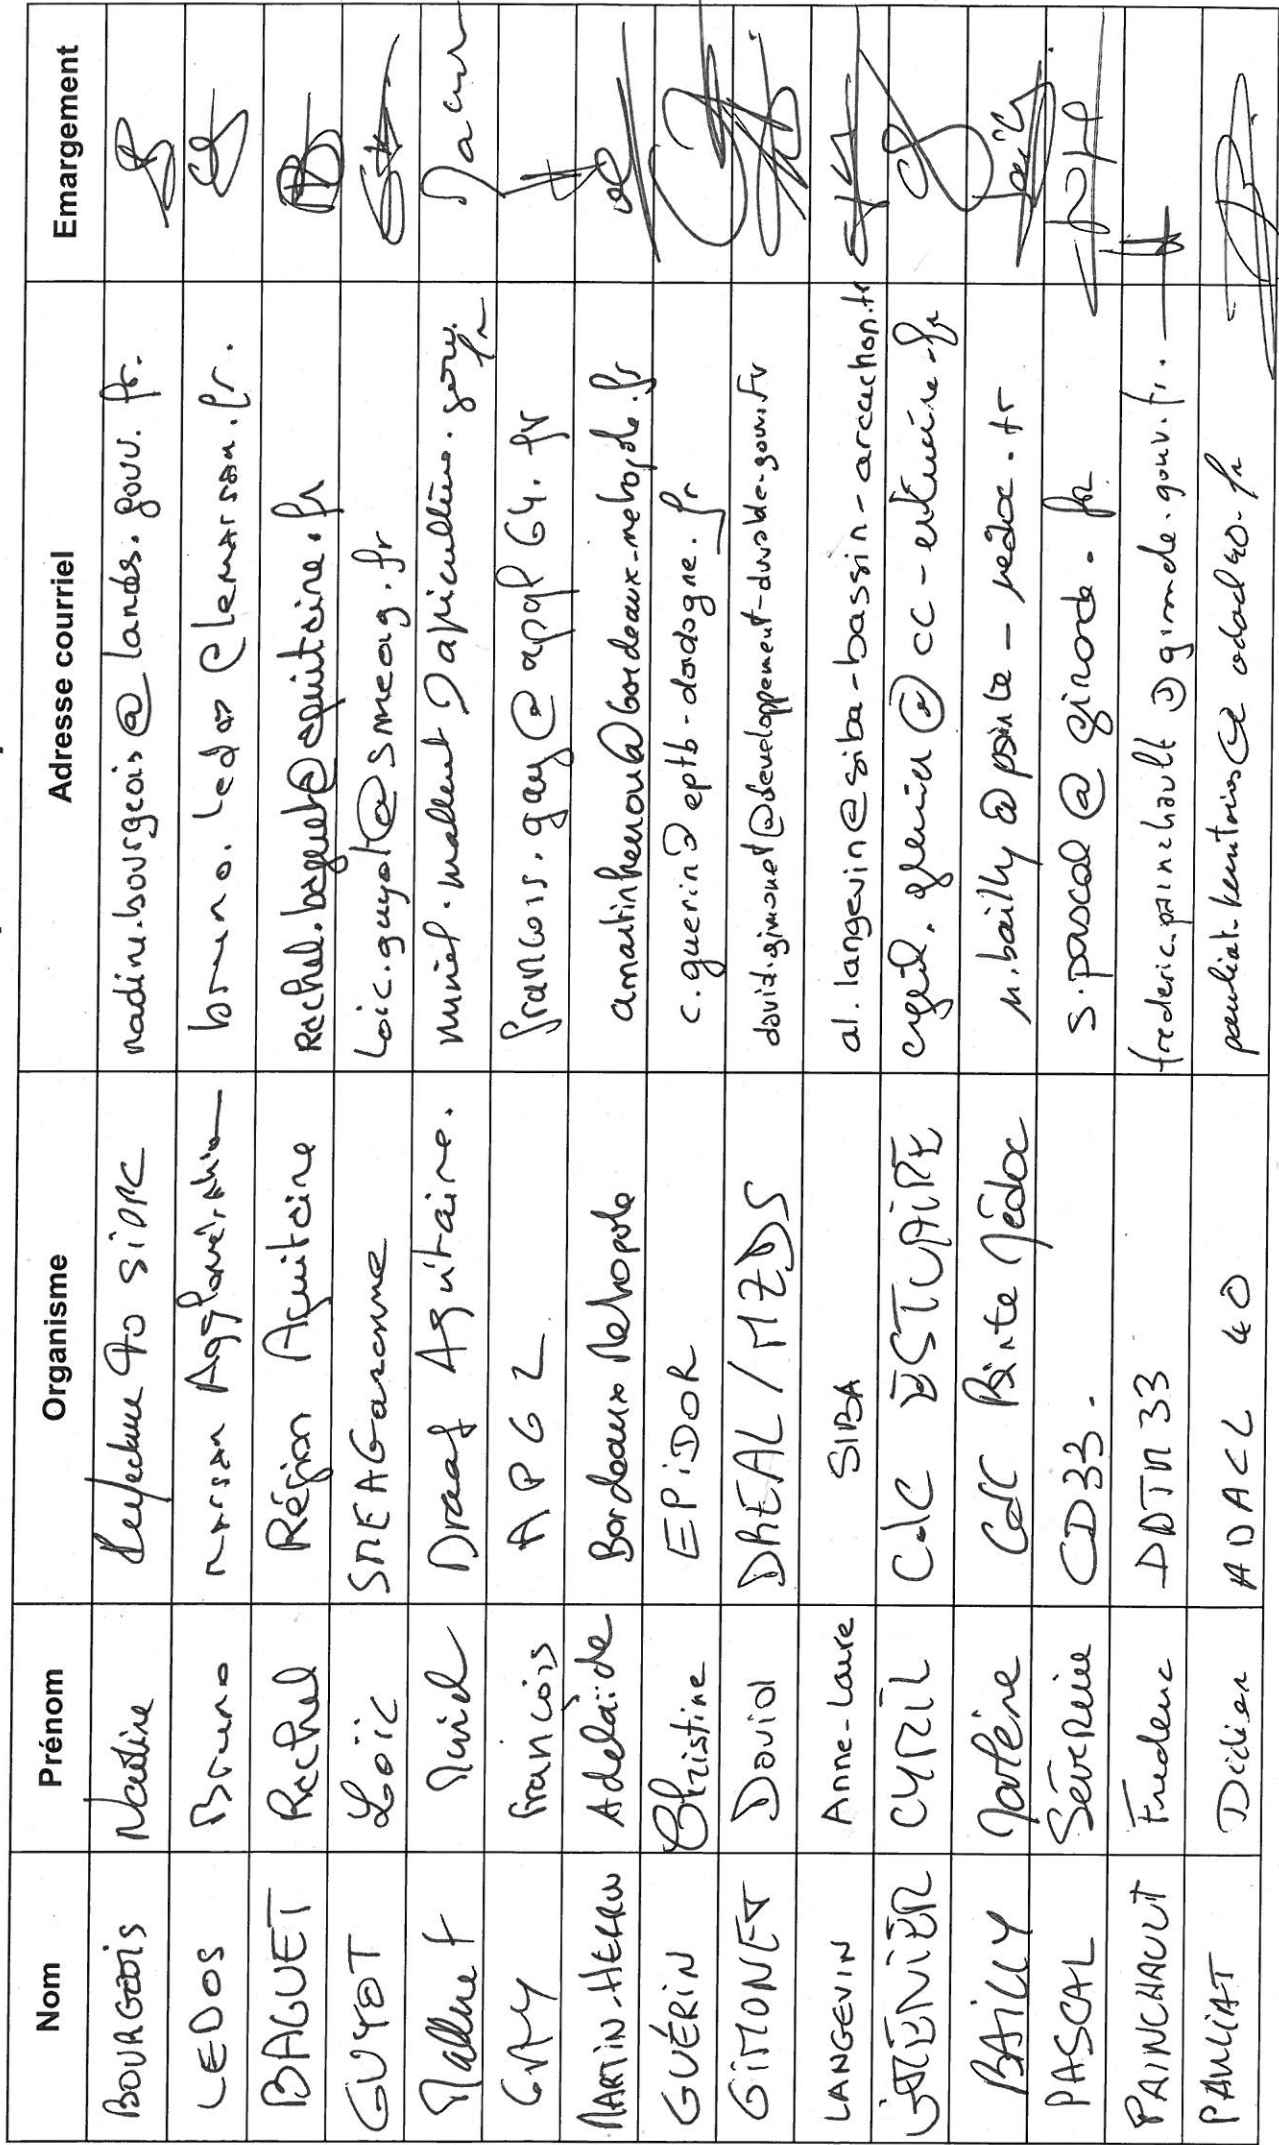 Nom Prénom Organisme Adresse courriel Emargement
BOURGEOIS Nadine Préfecture 40 SIDPC nadine.bourgeois@landes.gouv.fr.
LEDOS Bruno Marsan Agglomération bruno.ledos@lemarsan.fr.
BAGUET Rachel Région Aquitaine Rachel.baguet@aquitaine.fr
GUYOT Loïc SMEAGaronne loic.guyot@smeag.fr
Mallet Muriel Draaf Aquitaine.
GAY François APGL francois.gay@apgl64.fr
MARTIN-HERROU Adelaïde Bordeaux Metropole amartinherrou@bordeaux-metropole.fr
GUÉRIN Christine EPIDOR c.guerin@eptb-dordogne.fr
GIMONET David DREAL/MZDS
LANGEVIN Anne-Laure SIBA al.langevin@siba-bassin-arcachon.fr
GRENIER CYRIL CdC ESTUAIRE cyril.grenier@cc-estuaire.fr
BAILLY Marlène CdC Pointe Médoc m.bailly@pointe-medoc.fr
PASCAL Séverine CD33. s.pascal@gironde.fr
PAINCHAULT Frederic DDTM33 frederic.painchault@gironde.gouv.fr.
PAULIAT Didier ADACL 40